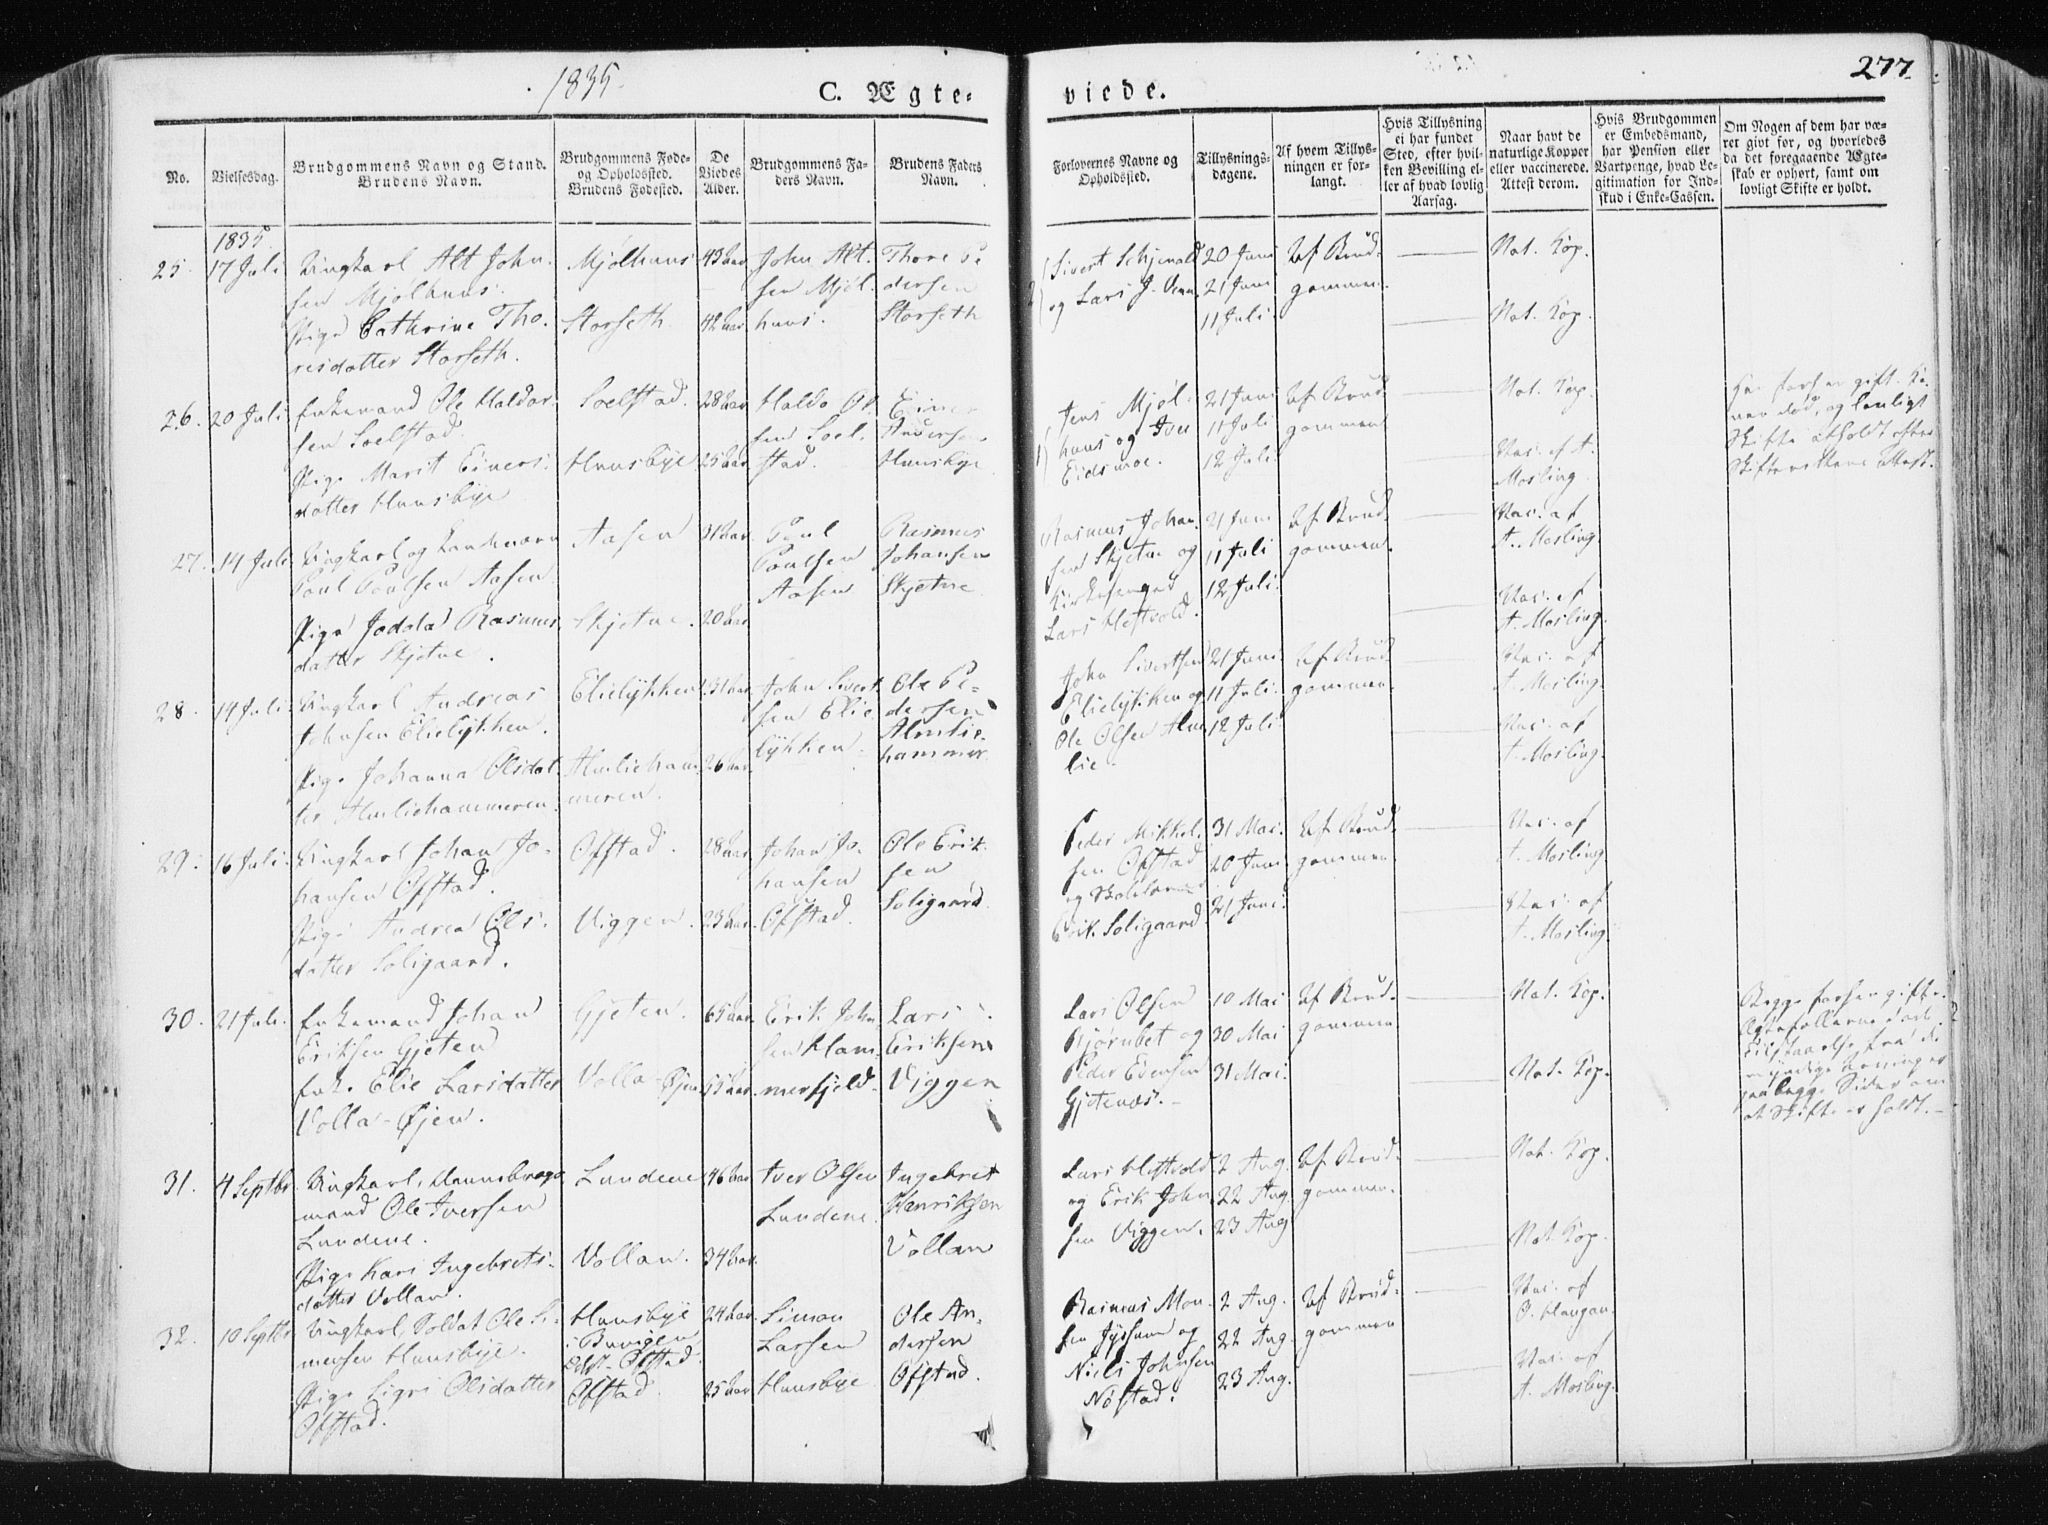 1835.
C. Ægte-
viede.
277.
No.
Vielsesdag.
Brudgommens Navn og Stand.
Brudens Navn.
Brudgommens Føde-
og Opholdssted.
Brudens Fødested.
De
Viedes
Alder.
Brudgommens Fa-
ders Navn.
Brudens Faders
Navn.
Forlovernes Navne og
Opholdssted.
Tillysnings-
dagene.
Af hvem Tillys-
ningen er for-
langt.
Hvis Tillysning
ei har fundet
Sted, efter hvil-
ken Bevilling el-
ler af hvad lovlig
Aarsag.
Naar havt de
naturlige Kopper
eller vaccinerede.
Attest derom.
Hvis Brudgommen
er Embedsmand,
har Pension eller
Vartpenge, hvad Le-
gitimation for Ind-
skud i Enke-Cassen.
Om Nogen af dem har væ-
ret gift før, og hvorledes
da det foregaaende Ægte-
skab er ophørt, samt om
lovligt Skifte er holdt.
1835.
25.
17 Juli
Ungkarl Alt John-
sen Mjølhuus.
Pige Cathrine Tho-
resdatter Storseth.
Mjølhuus
Storseth
43 Aar
42 Aar
John Alt-
sen Mjøl-
huus.
Thore Pe
dersen
Storseth
2) Sivert Schjenald
og Lars J. Venn.
20 Juni
21 Juni
11 Juli
Af Brud-
gommen.
Nat. Kop.
Nat. Kop.
26.
20 Juli
Enkemand Ole Haldor-
sen Soelstad.
Pige Marit Einers-
datter Huusbye
Soelstad.
Huusbye
28 Aar
25 Aar
Haldo Ol-
sen Soel-
stad.
Einer
Andersen
Huusbye
1) Jens Mjøl-
huus og Iver
Eidsmoe.
21 Juni
11 Juli
12 Juli
Af Brud-
gommen
Nat. Kop.
Vac. af A.
Mosling
Har før er gift. Ko-
nen død, og lovligt
Skifte atholdt efter
Skifterettens Attest.
27.
14 Juli
Ungkarl og Landværn
Poul Poulsen Aasen
Pige Jodda Rasmus-
datter Skjetne.
Aasen
Skjetne.
31 Aar
20 Aar
Poul
Poulsen
Aasen
Rasmus
Johansen
Skjetne
Rasmus Johan-
sen Skjetne og
Kirkesanger
Lars Hestvold.
21 Juni
11 Juli
12 Juli.
Af Brud-
gommen.
Vac. af
A. Mosling.
Vac. af
A. Mosling.
28.
14 Juli
Ungkarl Andreas
Johnsen Elielykken.
Pige Johanna Olsdat-
ter Almliehammeren.
Elielykken
Almlieham-
meren.
31 Aar
26 Aar
John Sivert-
sen Elie
lykken.
Ole Pe-
dersen
Almlie-
hammer
John Sivertsen
Elielykken og
Ole Olsen Alm
lie
21 Juni
11 Juli.
12 Juli
Af Brud
gommen.
Vac. af
A. Mosling.
Vac. af
A. Mosling.
29.
16 Juli.
Ungkarl Johan Jo-
hansen Ofstad.
Pige Andrea Ols-
datter Soligaard.
Ofstad.
Viggen.
28 Aar
23 Aar
Johan Jo-
hansen
Ofstad.
Ole Erik-
sen
Soligaard.
Peder Mikkel-
sen Ofstad
og Skolelærer
Erik Soligaard
31 Mai.
20 Juni
21 Juni.
Af Brud-
gommen
Vac. af
A. Mosling
Vac. af
A. Mosling.
30.
21 Juli.
Enkemand Johan
Eriksen Gjeten
Enke Elie Larsdatter
Volla-Øjen.
Gjeten.
Volla-Øjen
65 Aar
55 Aar
Erik John-
sen Ham-
merfjeld.
Lars
Eriksen
Viggen
Lars Olsen
Bjørnbet og
Peder Evensen
Gjetenæs.-
10 Mai
30 Mai
31 Mai.
Af Brud-
gommen
Nat. Kop.
Nat. Kop.
Begge før er gifte.
Ægtefællerne døde.
Tilstaaelse fra de
myndige Arvinger
paa begge Sider om
at Skifte er holdt.-
31.
4 Septbr.
Ungkarl, Dannebrogs-
mand Ole Iversen
Lundene.
Pige Kari Ingebrets-
datter Vollan.
Lundene
Vollan.
46 Aar
34 Aar
Iver Olsen
Lundene.
Ingebret
Henriksen
Vollan
Lars Hestvold
og Erik John-
sen Viggen.
2 Aug.
22 Aug.
23 Aug
Af Brud-
gommen.
Nat. Kop.
Nat. Kop.
32.
10 Septbr
Ungkarl, Soldat Ole Si-
mensen Huusbye.
Pige Sigri Olsdatter
Ofstad.
Huusbye
i Buvigen
Ofstad.
Ofstad.
24 Aar
25 Aar
Simon
Larsen
Huusbye
Ole An-
dersen
Ofstad.
Rasmus Mon-
sen Jyssum og
Niels Johnsen
Nøstad.
2 Aug.
22 Aug.
23 Aug.
Af Brud-
gommen
Vac. af
O. Haugan.
Vac. af
A. Mosling.